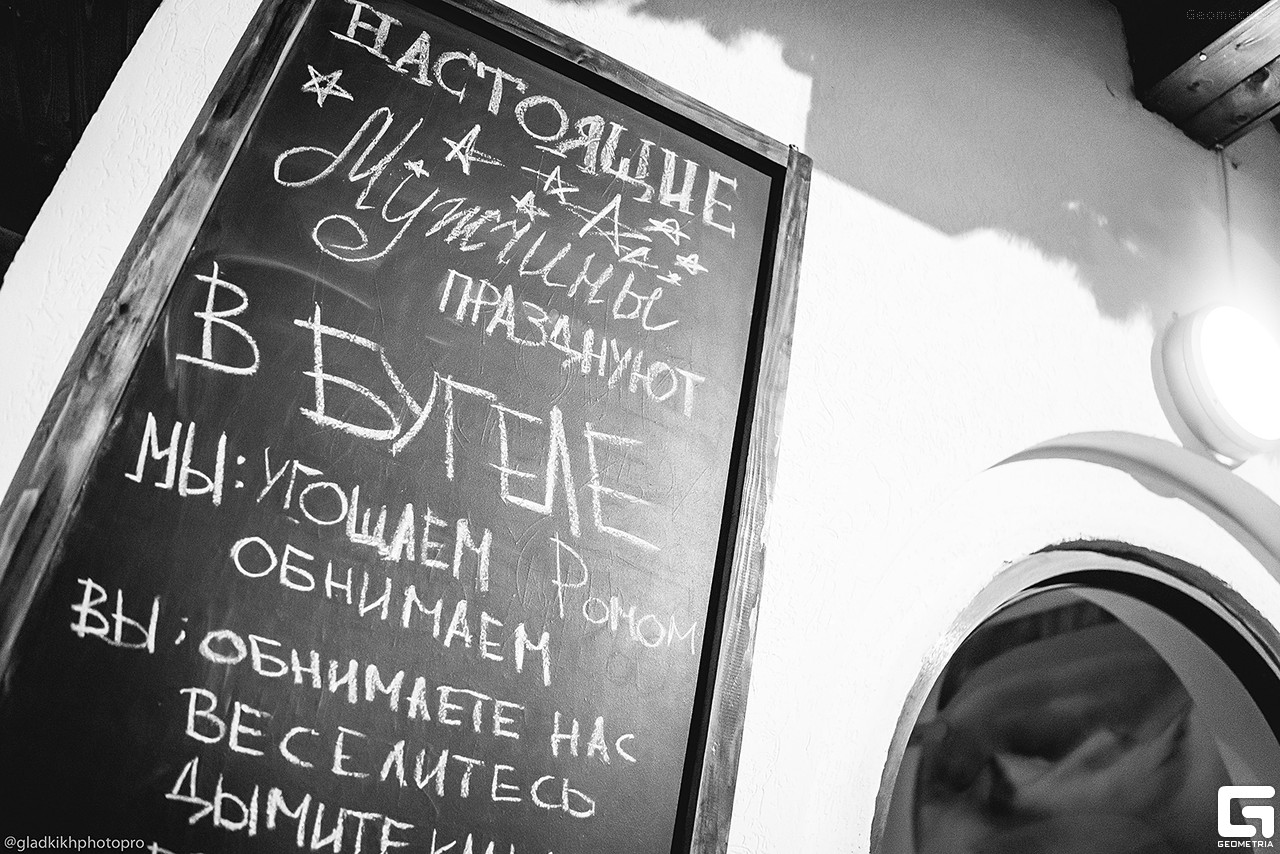 НАСТОЯЩИЕ
Мужчины
ПРАЗДНУЮТ
В БУГЕЛЕ
МЫ: УГОЩАЕМ РОМОМ
ОБНИМАЕМ
ВЫ: ОБНИМАЕТЕ НАС
ВЕСЕЛИТЕСЬ
ДЫМИТЕ
@gladkikhphotopro
GEOMETRIA